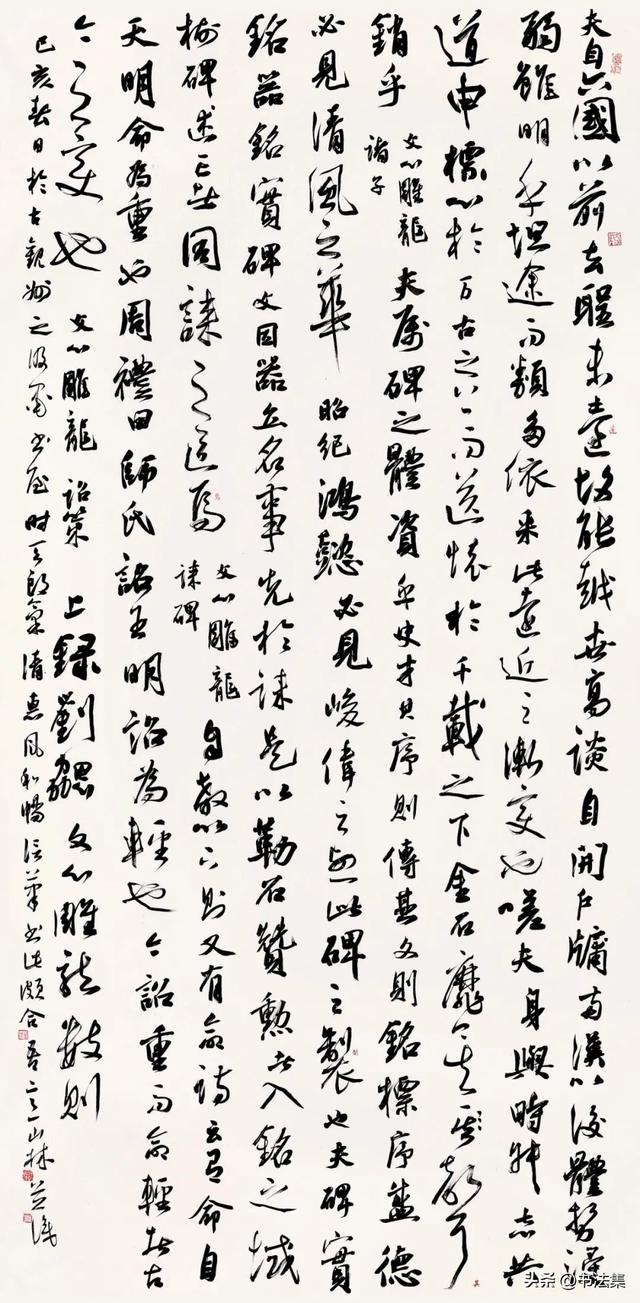 夫自六國以前去聖未遠故能越世高談自開戶牖兩漢以後體勢漫
弱雖明乎坦途而類多依采此遠近之漸變也嗟夫身與時舛志共
道申標心於萬古之上而送懷於千載之下金石靡矣聲其
銷乎 文心雕龍 諸子 夫屬碑之體資乎史才其序則傳其文則銘標序盛德
必見清風之華昭紀鴻懿必見峻偉之烈此碑之製也夫碑實
銘器銘實碑文因器立名事先於誄是以勒石贊勳者入銘之域
樹碑述亡者同誄之區焉 文心雕龍 誄碑 自教以下則又有命詩云有命自
天明命為重也周禮曰師氏詔王明詔為輕也今詔重而命輕者古
今之變也 文心雕龍 詔策 上錄劉勰文心雕龍數則
己亥春日於古觀州之 書屋時天朗氣清惠風和暢信筆書此頗合吾意山林並識
头条 @书法集